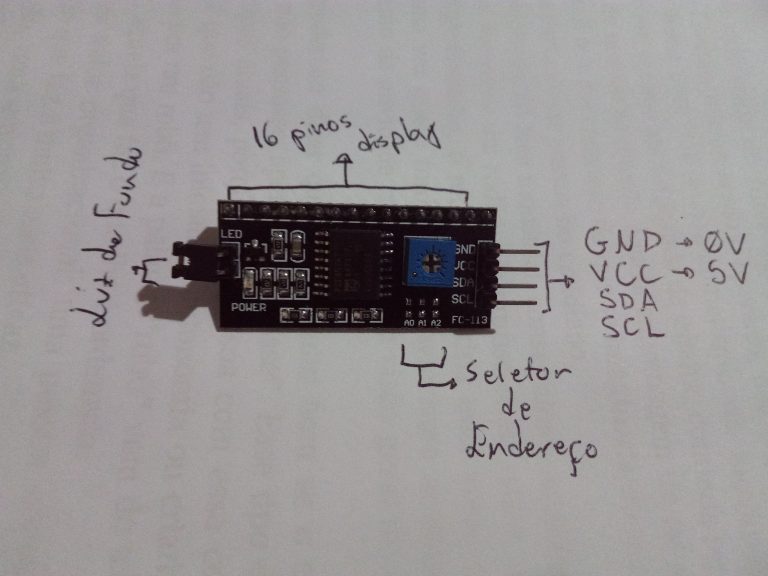 16 pinos display
Luz de Fundo
LED
POWER
GND
VCC
SDA
SCL
A0 A1 A2
FC-113
GND → 0V
VCC → 5V
SDA
SCL
Seletor
de
Endereço